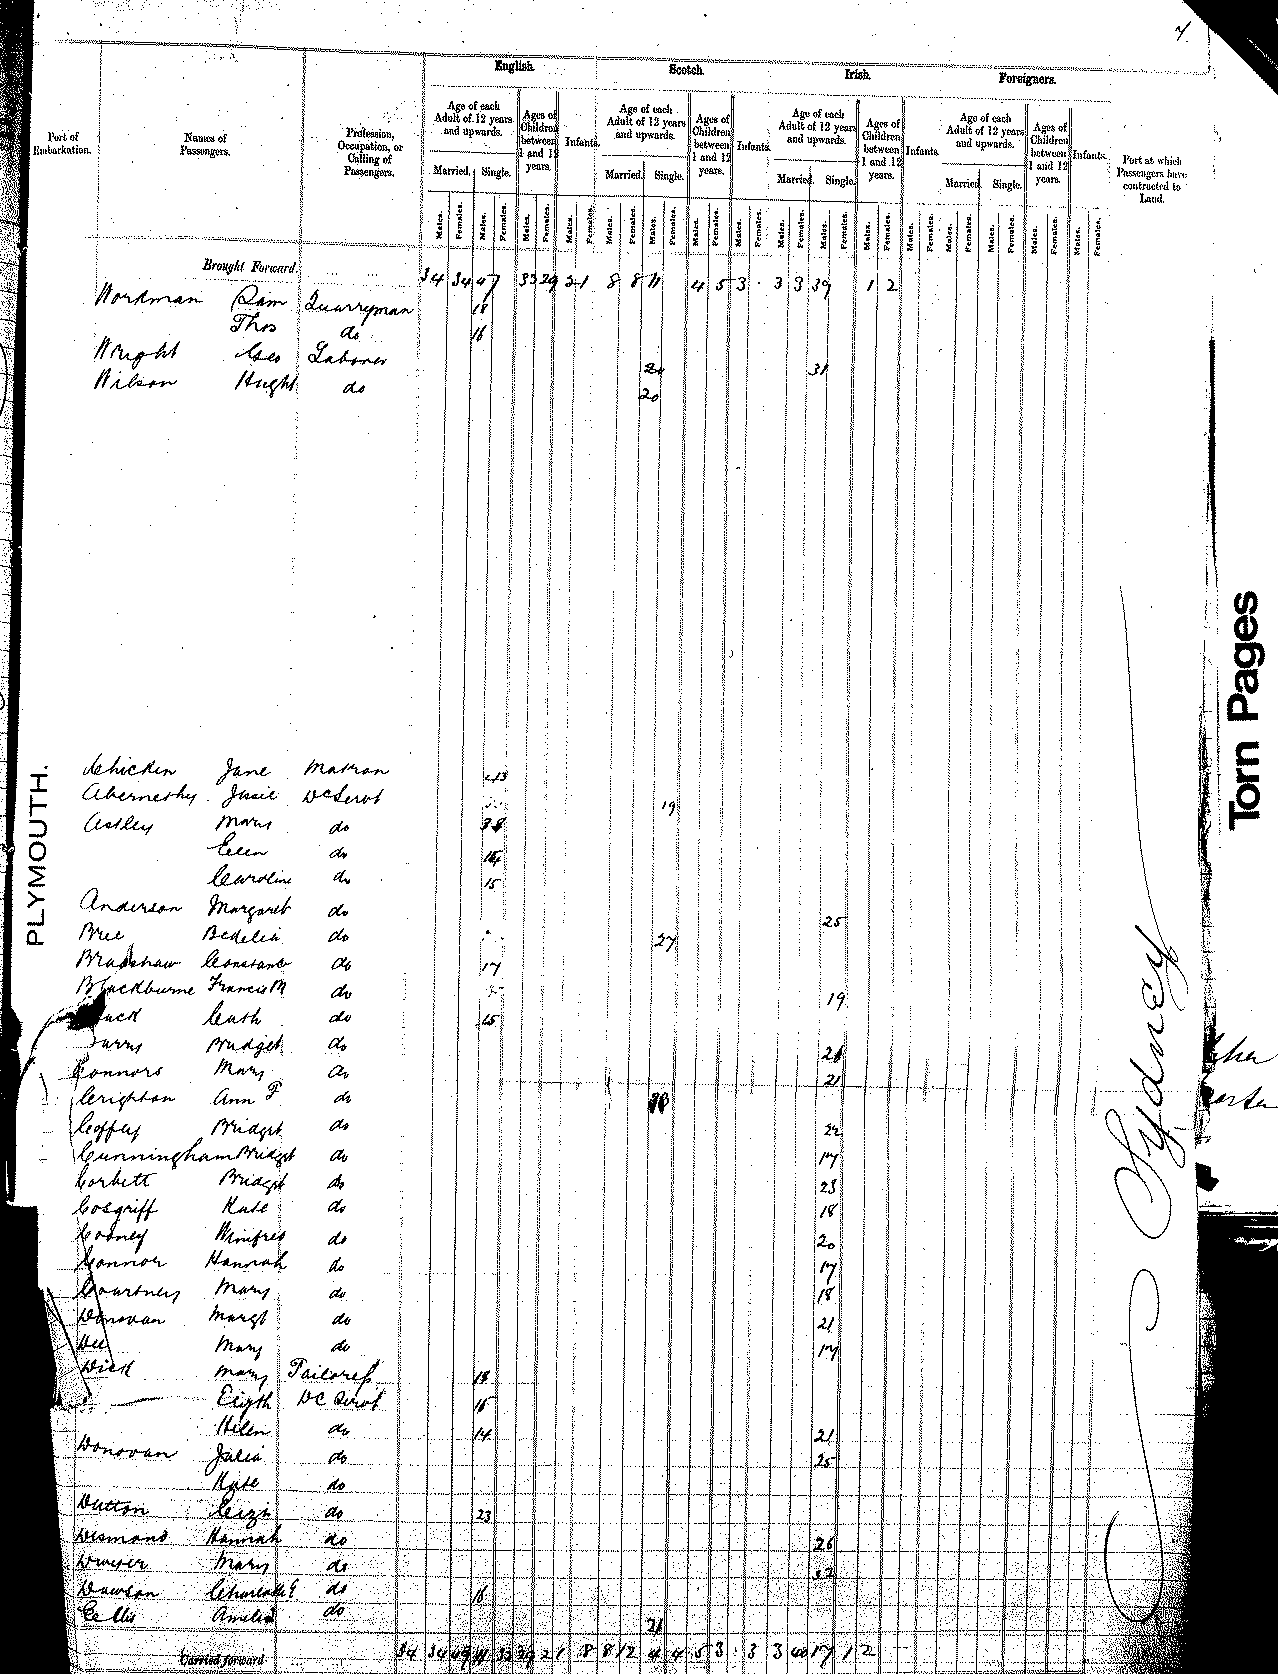 7
English. Scotch. Irish. Foreigners.
Port of Embarkation. Names of Passengers. Profession, Occupation, or Calling of Passengers. Age of each Adult of 12 years and upwards. Ages of Children between 1 and 12 years. Infants. Age of each Adult of 12 years and upwards. Ages of Children between 1 and 12 years. Infants. Age of each Adult of 12 years and upwards. Ages of Children between 1 and 12 years. Infants. Age of each Adult of 12 years and upwards. Ages of Children between 1 and 12 years. Infants. Port at which Passengers have contracted to Land.
Married. Single. Married. Single. Married. Single. Married. Single.
Males. Females. Males. Females. Males. Females. Males. Females. Males. Females. Males. Females. Males. Females. Males. Females. Males. Females. Males. Females. Males. Females. Males. Females. Males. Females. Males. Females. Males. Females. Males. Females.
Brought Forward. 34 34 47 33 29 21 8 8 11 4 5 3 3 3 39 1 2
Workman Sam Quarryman 18
Thos do 16
Wright Geo Laborer 31
Wilson Hugh do 20
PLYMOUTH.
Torn Pages
Sydney
Chicken Jane Matron 43
Abernethy Jessie Dc Servt 19
Astley Mary do
Ellen do
Caroline do 15
Anderson Margaret do 25
Bree Bedelia do 27
Bradshaw Constance do 17
Blackburne Francis M do 19
Cath do 15
Bridget do
Connors Mary do 21
Crighton Ann F do
Coffey Bridget do 22
Cunningham Bridget do 17
Corbett Bridget do 23
Cosgriff Kate do 18
Cooney Winifred do 20
Connor Hannah do 17
Courtney Mary do 18
Donovan Margt do 21
Dee Mary do 17
Dick Mary Tailoress 18
Eizth Dc Servt
Helen do 14 21
Donovan Julia do 25
Kate do
Dutton do 23
Desmond Hannah do 26
Dwyer Mary do
Dawson Charlotte E do 16
Ellis Amelia do 21
Carried forward 34 34 49